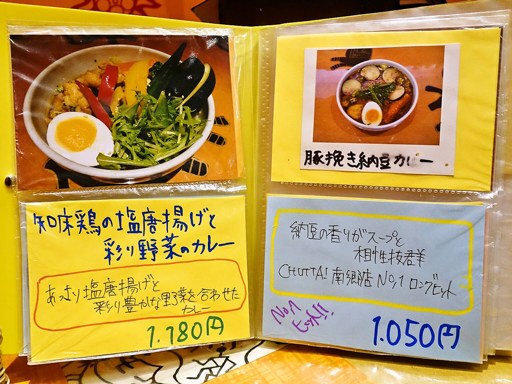 知床鶏の塩唐揚げと
彩り野菜のカレー
あっさり塩唐揚げと
彩り豊かな野菜を合わせた
カレー
1.180円
豚挽き納豆カレー
納豆の香りがスープと
相性抜群
CHUTTA! 南郷店 No,1 ロングヒット
No.1
ヒット!!
1.050円